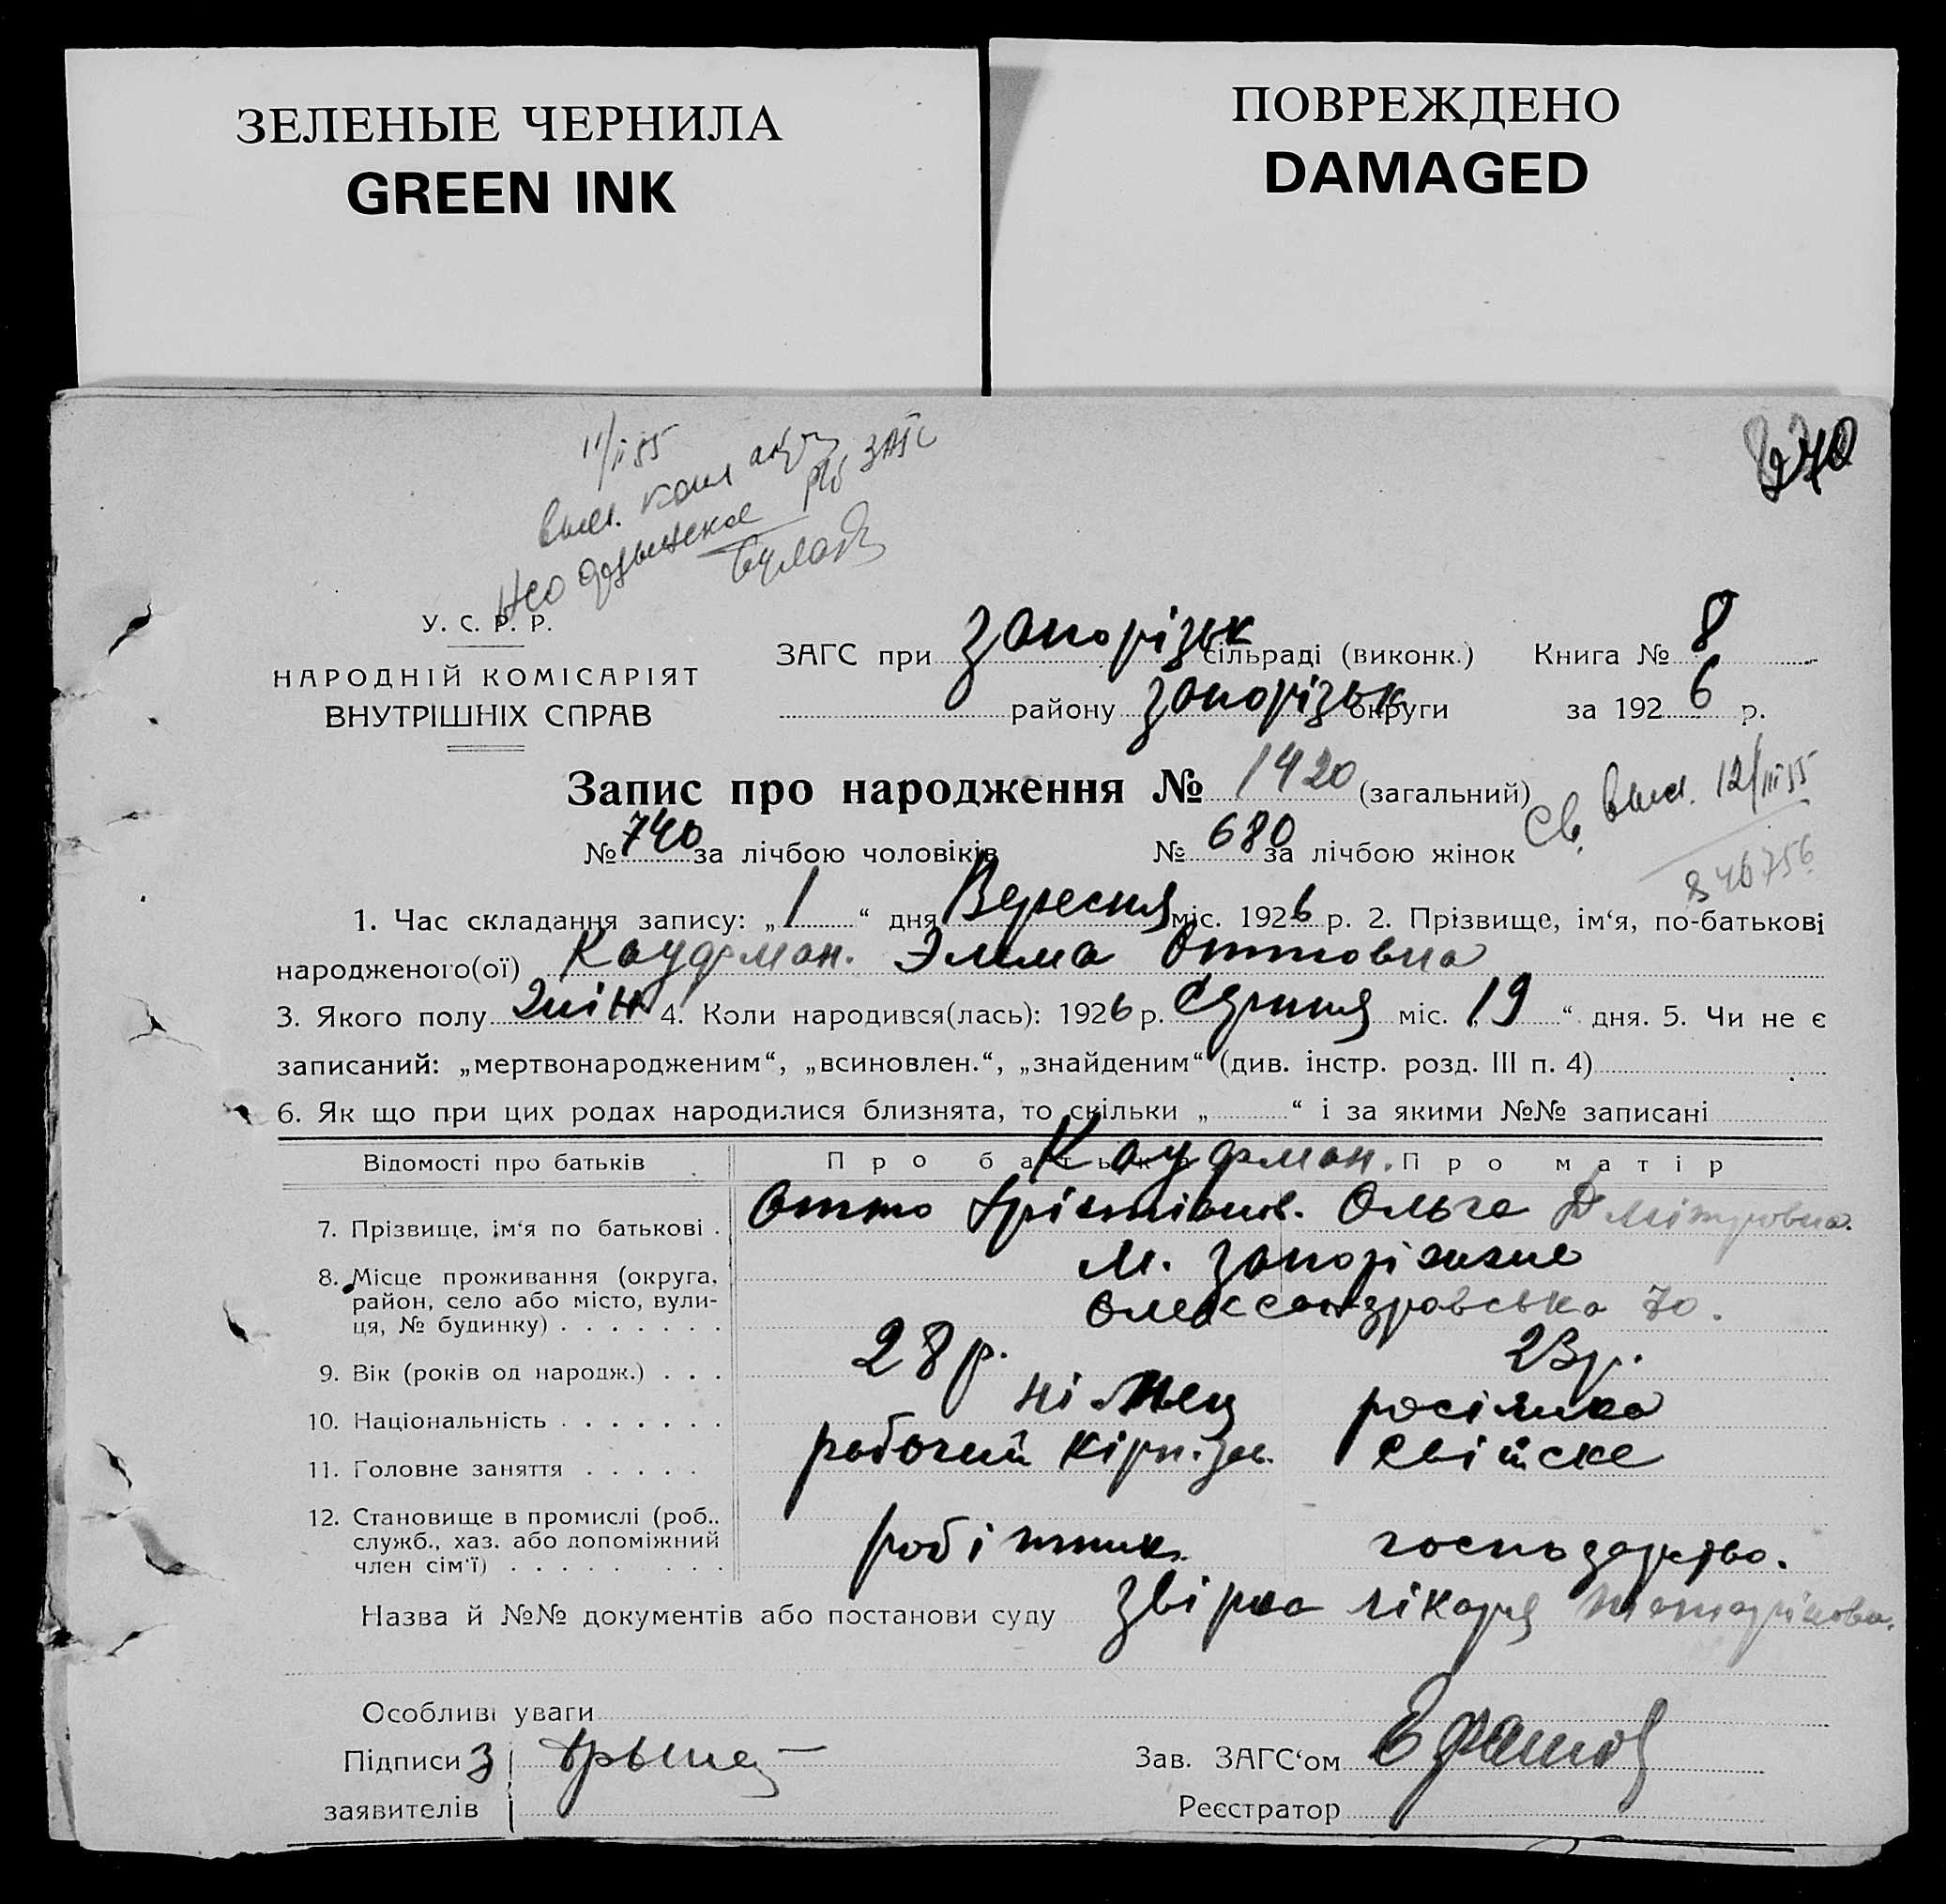 ЗЕЛЕНЫЕ ЧЕРНИЛА
GREEN INK
ПОВРЕЖДЕНО
DAMAGED
270
11/II 55
выс. коп
ЗАГС
У. С. Р. Р.
НАРОДНІЙ КОМІСАРІЯТ
ВНУТРІШНІХ СПРАВ
ЗАГС при Запорізьк сільраді (виконк.) Книга № 8
району Запорізьк округи за 1926 р.
Запис про народження № 1420 (загальний)
Св. выс. 12/III 55
№ 740 за лічбою чоловіків № 680 за лічбою жінок
1. Час складання запису: „1“ дня Вересня міс. 1926 р. 2. Прізвище, ім‘я, по-батькові
народженого(ої) Кауфман. Элма Оттовна
3. Якого полу жін 4. Коли народився(лась): 1926 р. Серпня міс. „19“ дня. 5. Чи не є
записаний: „мертвонародженим“, „всиновлен.“, „знайденим“ (див. інстр. розд. III п. 4)
6. Як що при цих родах народилися близнята, то скільки „ “ і за якими №№ записані
Відомості про батьків Про батька Про матір
Кауфман.
7. Прізвище, ім‘я по батькові . Отто Хрістіанов. Ольга Дмітровна.
8. Місце проживання (округа, район, село або місто, вулиця, № будинку) . . . . . . . м. Запоріжжя
Олександровська 70.
9. Вік (років од народж.) . . . 28 р. 23 р.
10. Національність . . . . . . . німец росіянка
11. Головне заняття . . . . . рабочий кірп. зав. свійске
12. Становище в промислі (роб.. служб., хаз. або допоміжний член сім‘ї) . . . . . . . . робітник господарство.
Назва й №№ документів або постанови суду Звірка лікаря
Особливі уваги
Підписи з
заявителів
Зав. ЗАГС‘ом
Реєстратор